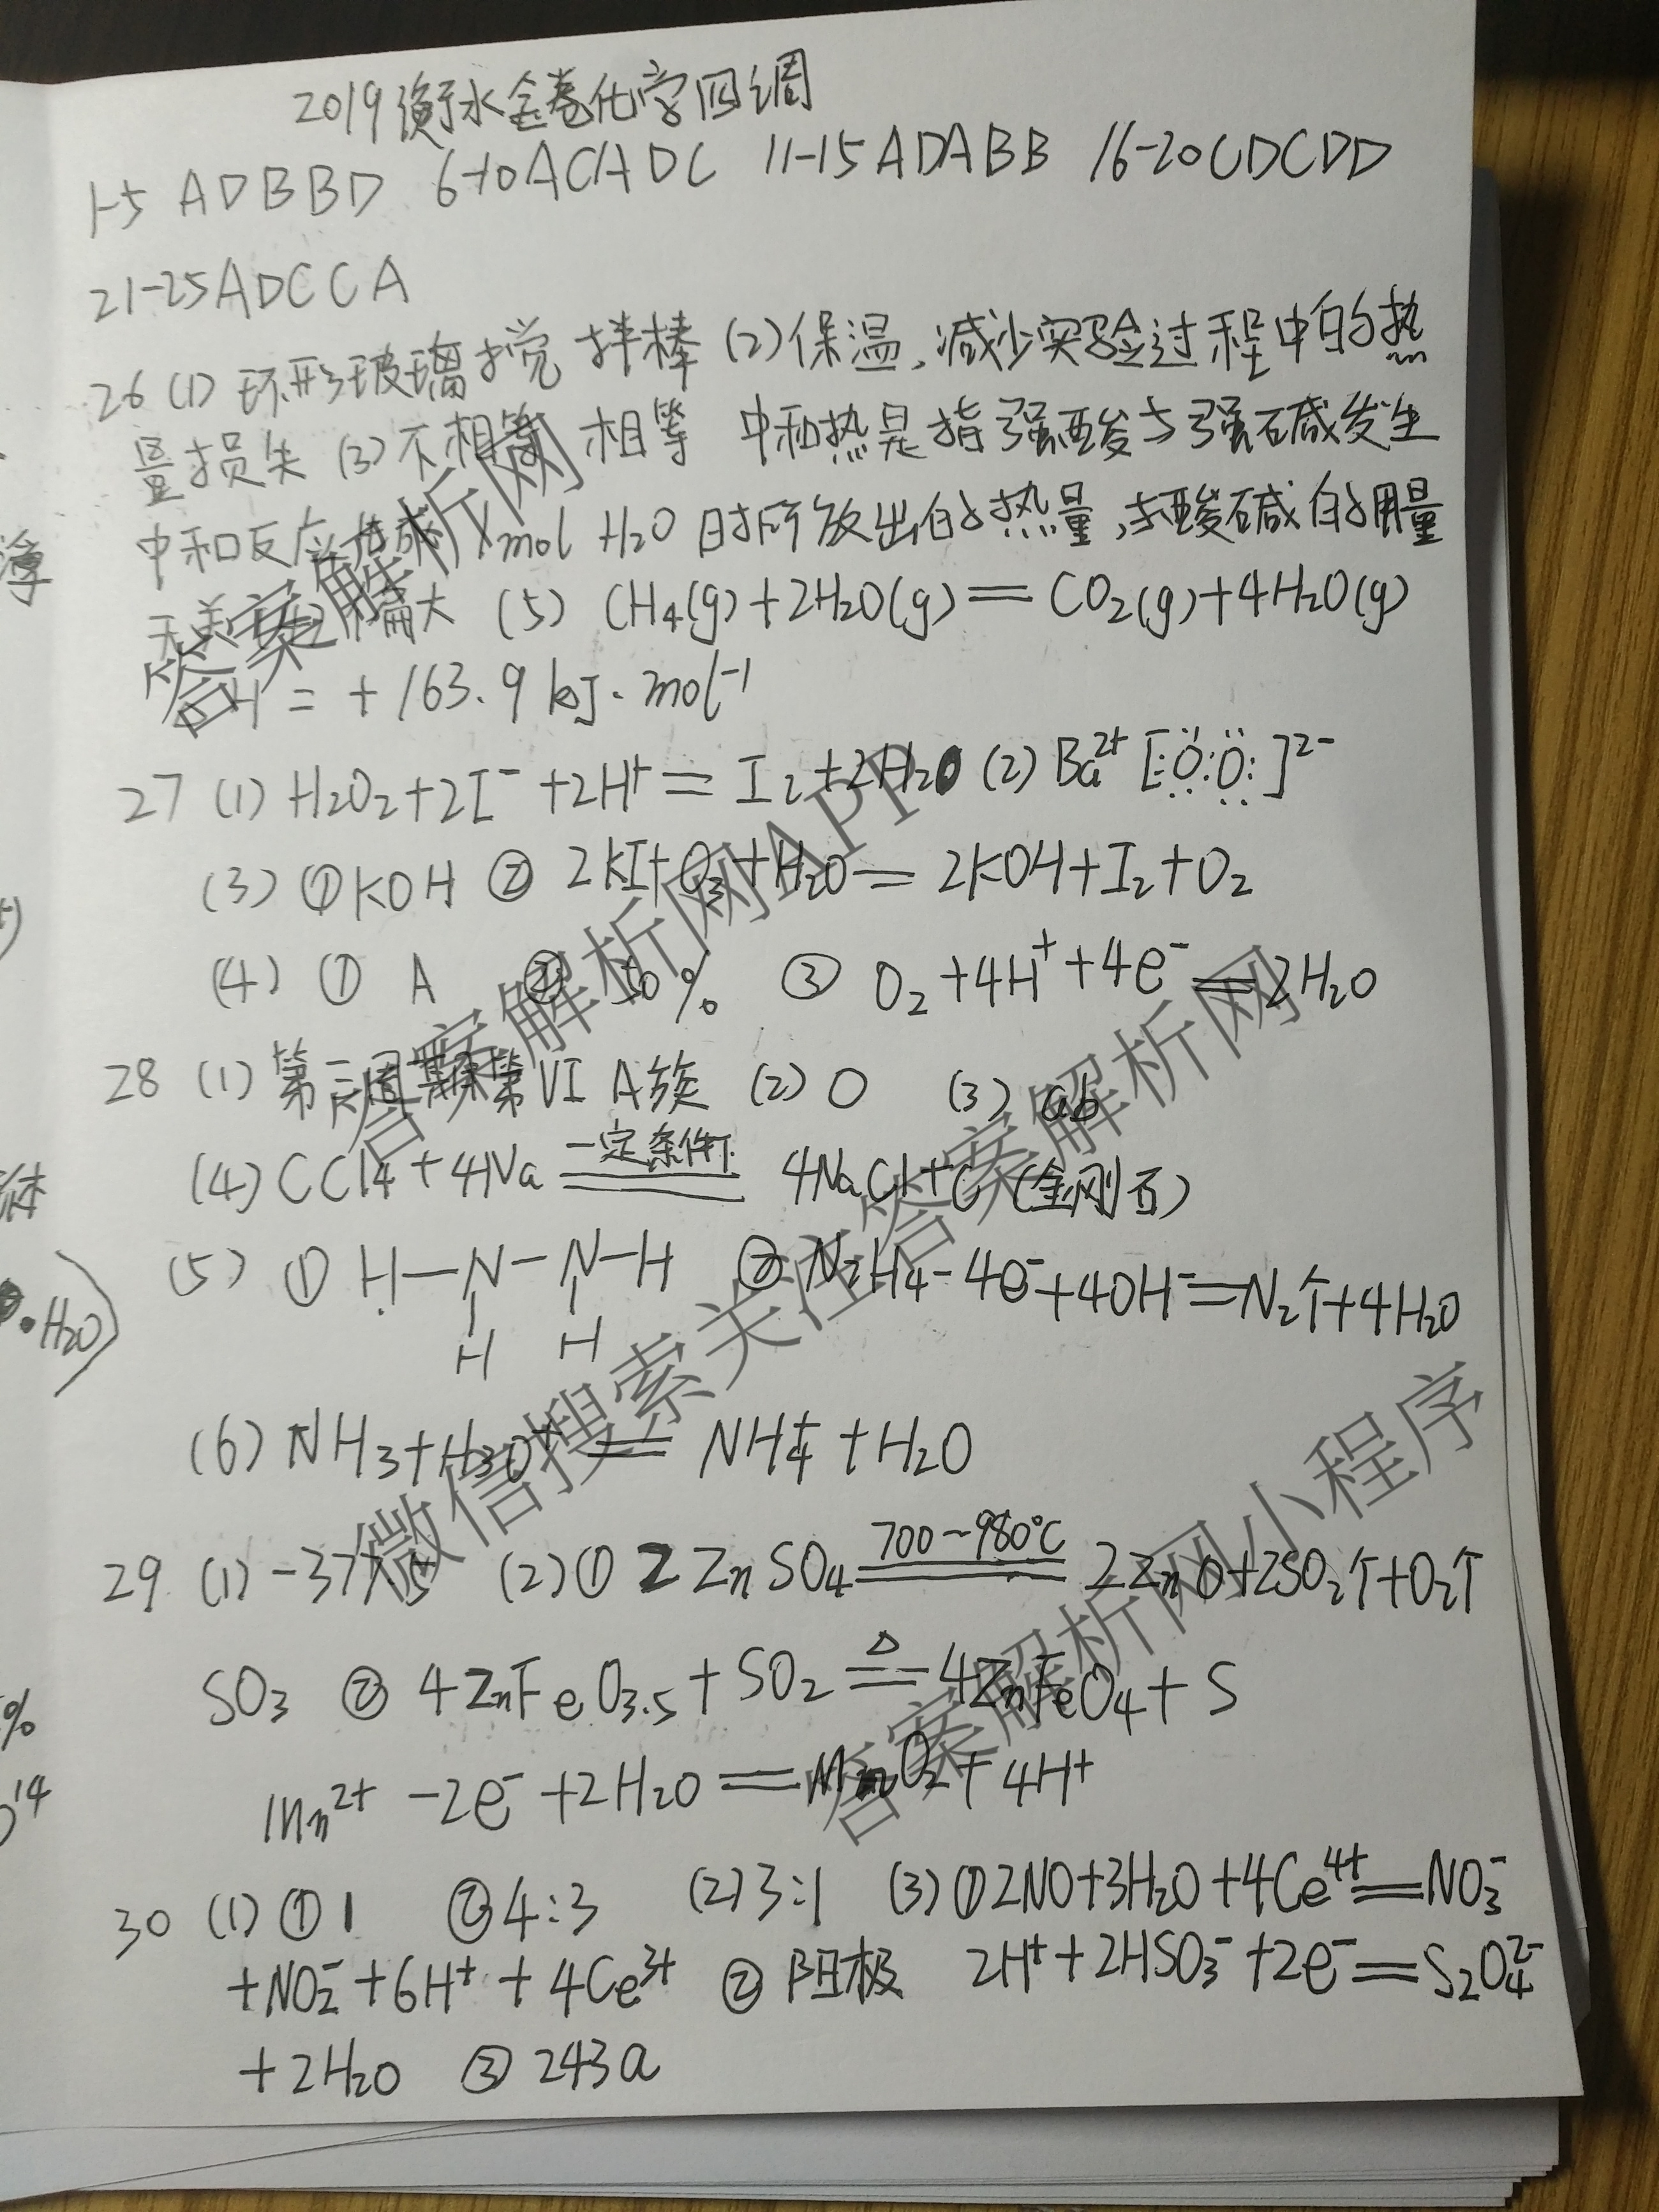 2019衡水金卷化学四调
1-5 ADBBD 6-10ACADC 11-15ADABB 16-20CDCDD
21-25ADCCA
26 (1) 环形玻璃搅拌棒 (2)保温,减少实验过程中的热
量损失 (3)不相等 相等 中和热是指强酸与强碱发生
中和反应生成1mol H₂O时所放出的热量,与酸碱的用量
无关 偏大 (5) CH₄(g)+2H₂O(g)=CO₂(g)+4H₂O(g)
ΔH=+163.9 kJ·mol⁻¹
27 (1) H₂O₂+2I⁻+2H⁺=I₂+2H₂O (2) Ba²⁺[:Ö:Ö:]²⁻
(3) ①KOH ② 2KI+O₃+H₂O=2KOH+I₂+O₂
(4) ① A ② 50% ③ O₂+4H⁺+4e⁻=2H₂O
28 (1) 第三周期第VIA族 (2) O (3) ab
(4) CCl₄+4Na 一定条件下 4NaCl+C(金刚石)
(5) ① H-N-N-H ② N₂H₄-4e⁻+4OH⁻=N₂↑+4H₂O
H H
(6) NH₃+H₃O⁺=NH₄⁺+H₂O
29 (1) (2)① 2ZnSO₄ 700~980℃ 2ZnO+2SO₂↑+O₂↑
SO₃ ② 4ZnFeO₃.₅+SO₂ △ 4ZnFeO₄+S
Mn²⁺-2e⁻+2H₂O=MnO₂+4H⁺
30 (1) ①1 ②4:3 (2)3:1 (3)①2NO+3H₂O+4Ce⁴⁺=NO₃⁻
+NO₂⁻+6H⁺+4Ce³⁺ ②阳极 2H⁺+2HSO₃⁻+2e⁻=S₂O₄²⁻
+2H₂O ③ 243a
薄
体
·H₂O)
%
14
答案解析网
答案解析网APP
微信搜索关注答案解析网
答案解析网小程序